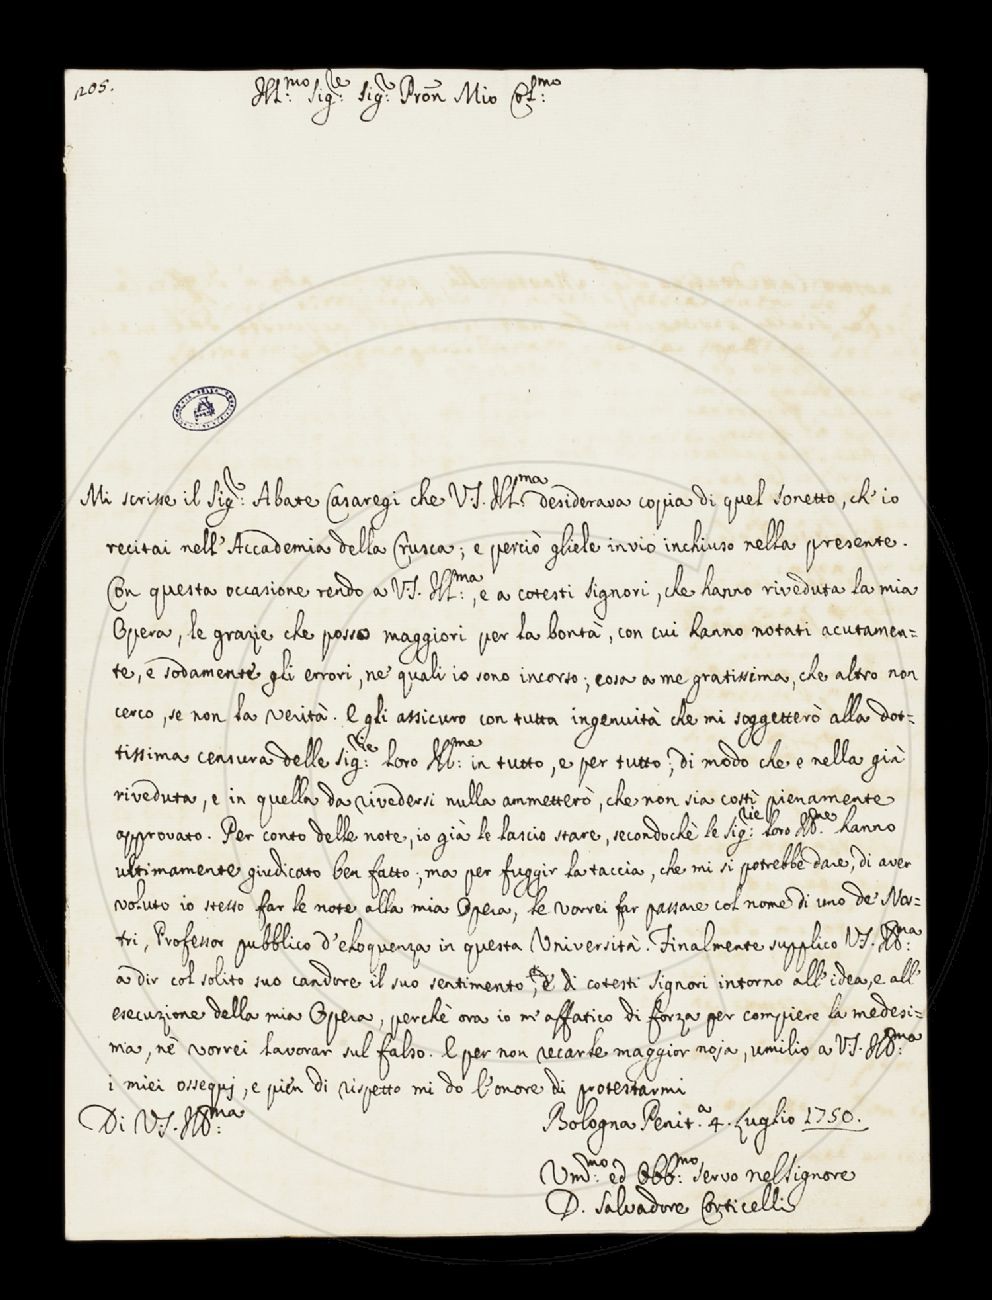 205.
Ill:mo Sig:re Sig:r Pron Mio Col:mo
Mi scrisse il Sig:r Abate Casaregi che V.S. Ill:ma desiderava copia di quel Sonetto, ch' io
recitai nell' Accademia della Crusca; e perciò gliele invio inchiuso nella presente.
Con questa occasione rendo a V.S. Ill:ma, e a cotesti Signori, che hanno riveduta la mia
Opera, le grazie che posso maggiori per la bontà, con cui hanno notati acutamen=
te, e sodamente gli errori, ne' quali io sono incorso; cosa a me gratissima, che altro non
cerco, se non la verità. E gli assicuro con tutta ingenuità che mi soggetterò alla dot=
tissima censura delle Sig:rie Loro Ill:me in tutto, e per tutto; di modo che e nella già
riveduta, e in quella da rivedersi nulla ammetterò, che non sia costì pienamente
approvato. Per conto delle note, io già le lascio stare, secondochè le Sig:rie Loro Ill:me hanno
ultimamente giudicato ben fatto; ma per fuggir la taccia, che mi si potrebbe dare, di aver
voluto io stesso far le note alla mia Opera, le vorrei far passare col nome di uno de' Nos=
tri, Professor pubblico d'eloquenza in questa Università. Finalmente supplico V.S. Ill:ma
a dir col solito suo candore il suo sentimento, e di cotesti Signori intorno all' idea, e all'
esecuzione della mia Opera, perchè ora io m' affatico di forza per compiere la medesi=
ma, nè vorrei lavorar sul falso. E per non recarle maggior noja, umilio a V.S. Ill:ma
i miei ossequj, e pien di rispetto mi do l'onore di protestarmi
Di V.S. Ill:ma
Bologna Penit.a 4. Luglio 1750.
Um:mo ed Obb:mo Servo nel Signore
D. Salvadore Corticelli